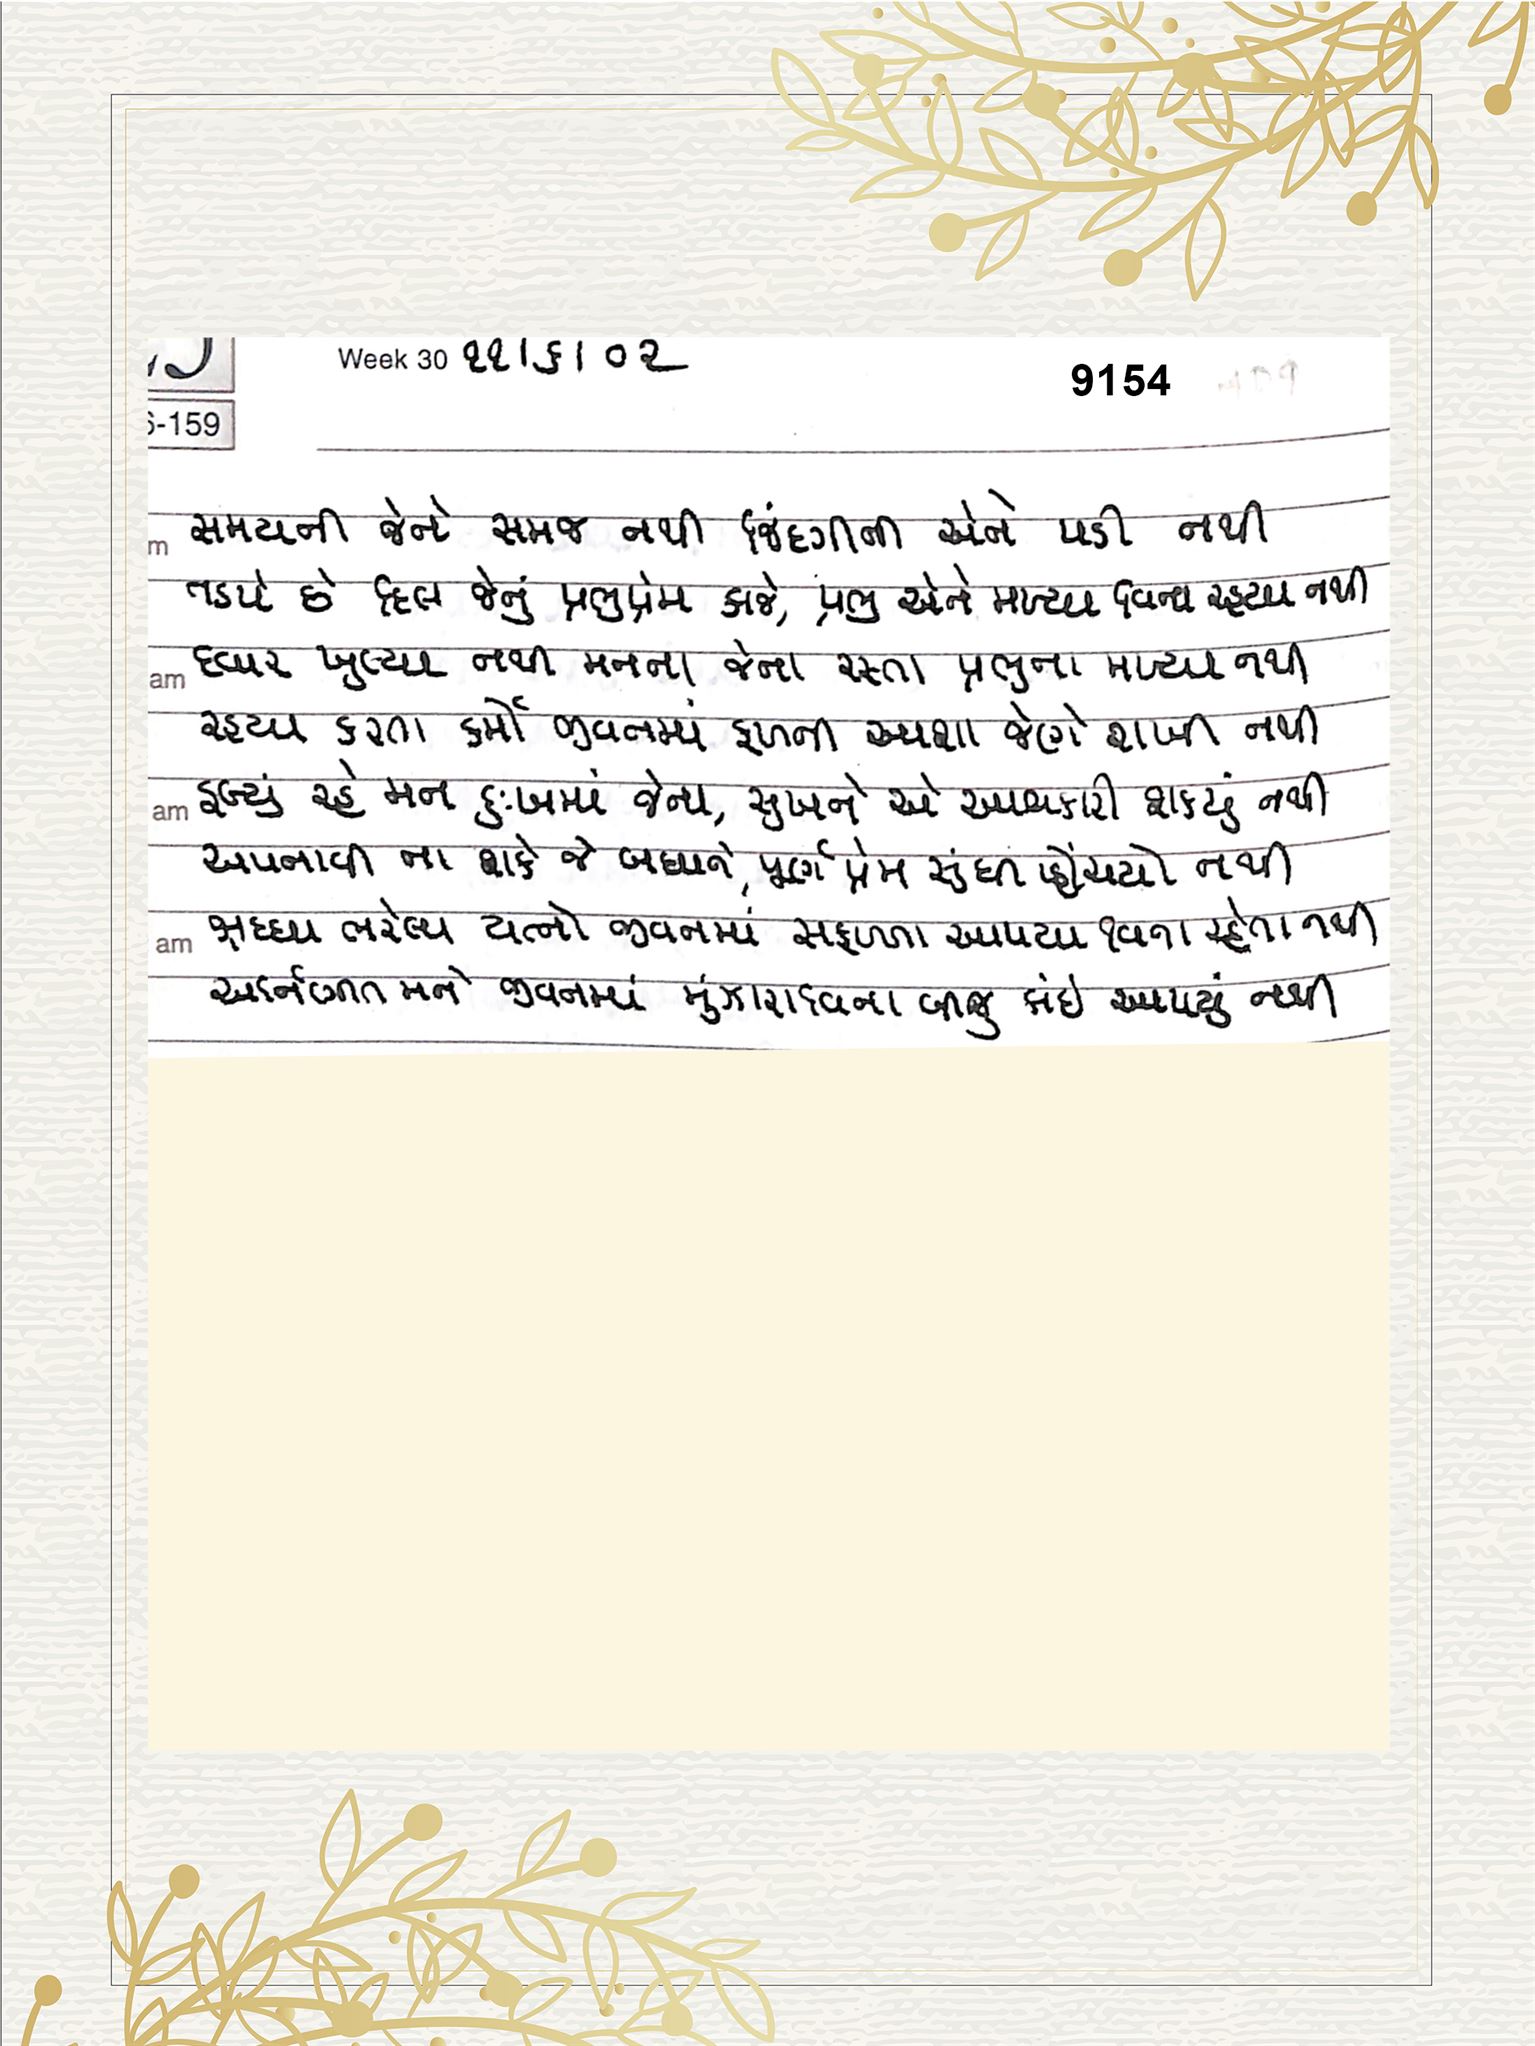 Week 30 ૧૧।૬।૦૨
9154
6-159
m સમયની જેને સમજ નથી જિંદગીની એને પડી નથી
તડપે છે દિલ જેનું પ્રભુપ્રેમ કાજે, પ્રભુ એને મળ્યા વિના રહ્યા નથી
am દ્વાર ખુલ્યા નથી મનના જેના રસ્તા પ્રભુના મળ્યા નથી
રહ્યા કરતા કર્મો જીવનમાં ફળની આશા જેણે રાખી નથી
am ડૂબ્યું રહે મન દુઃખમાં જેના, સુખને એ આવકારી શક્યું નથી
અપનાવી ના શકે જે બધાને, પૂર્ણ પ્રેમ સુંધી પ્હોંચ્યો નથી
am શ્રધ્ધા ભરેલા યત્નો જીવનમાં સફળતા આપ્યા વિના રહેતા નથી
અનિર્ણીત મને જીવનમાં મુંઝારાવિના બીજું કંઇ આપ્યું નથી